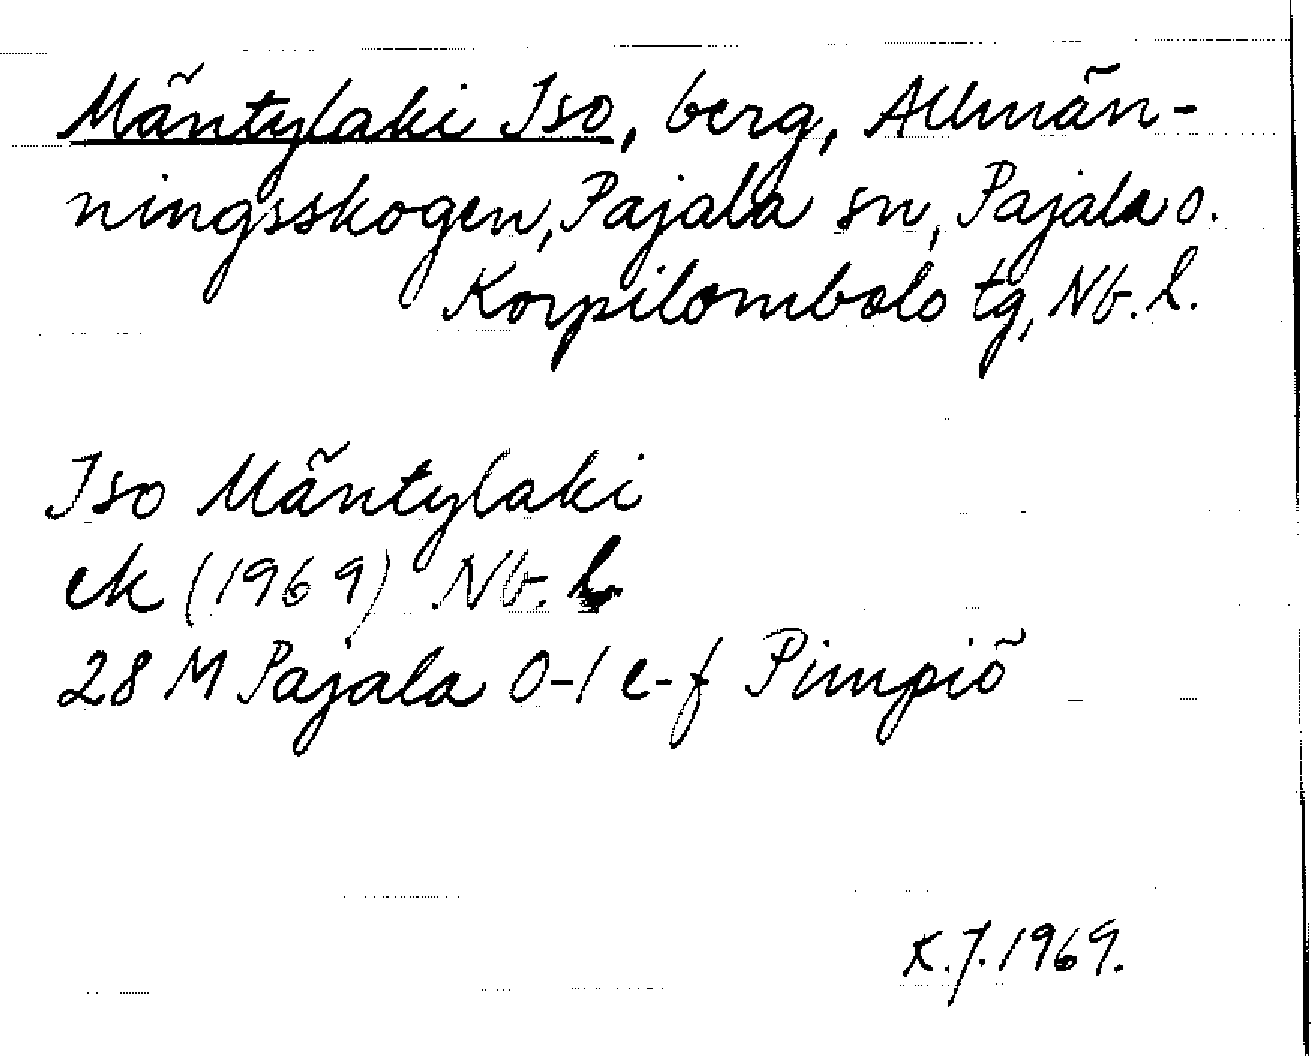 Mäntylaki Iso, berg, Allmän-
ningsskogen, Pajala sn, Pajala o.
Korpilombolo tg, Nb. l.
Iso Mäntylaki
ek (1969) Nb. l.
28 M Pajala 0-1 e-f Pimpiö
K.J. 1969.